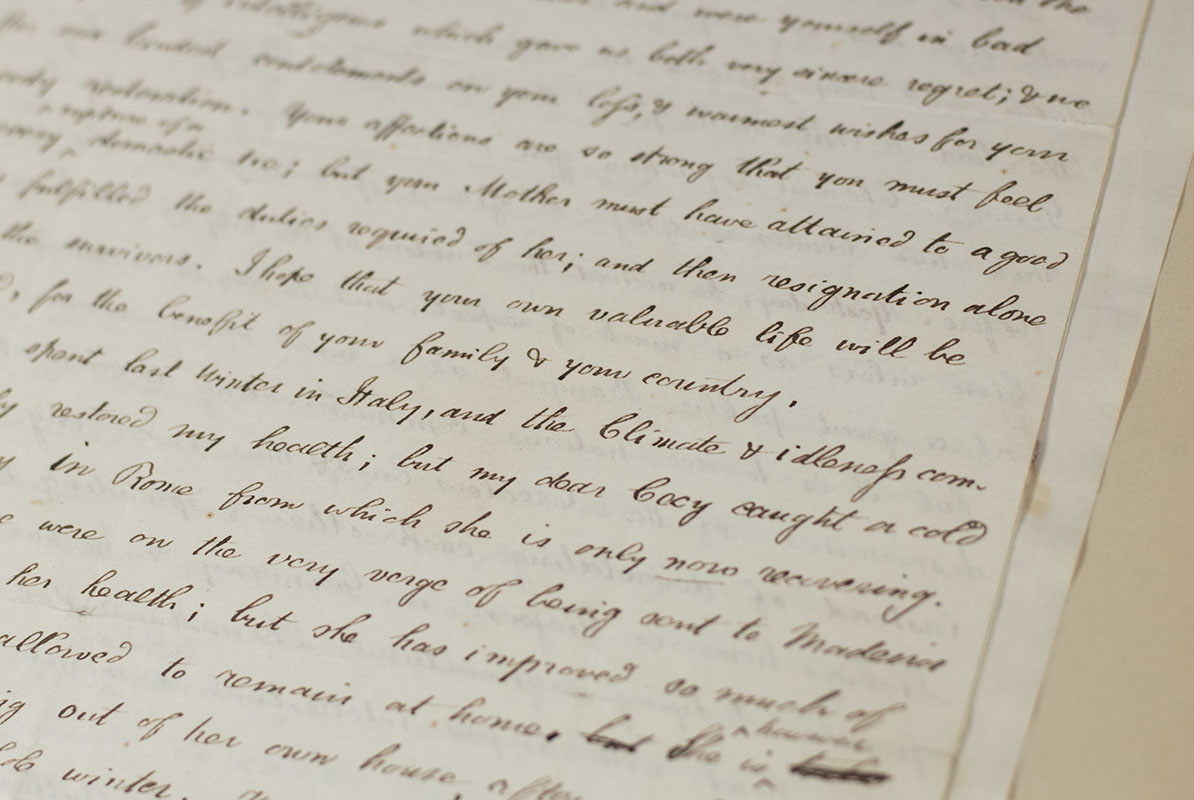 the
and were yourself in bad
of intelligence which gave us both very sincere regret; & we
our condolements on your loss, & warmest wishes for your
restoration. Your affections are so strong that you must feel
a rupture of a
domestic tie; but your Mother must have attained to a good
fulfilled the duties required of her; and then resignation alone
the survivors. I hope that your own valuable life will be
for the benefit of your family & your country.
spent last Winter in Italy, and the Climate & idleness com-
restored my health; but my dear Cocy caught a cold
in Rome from which she is only now recovering.
were on the very verge of being sent to Madeira
her health; but she has improved so much of
allowed to remain at home. but She is
however
out of her own house after
winter.